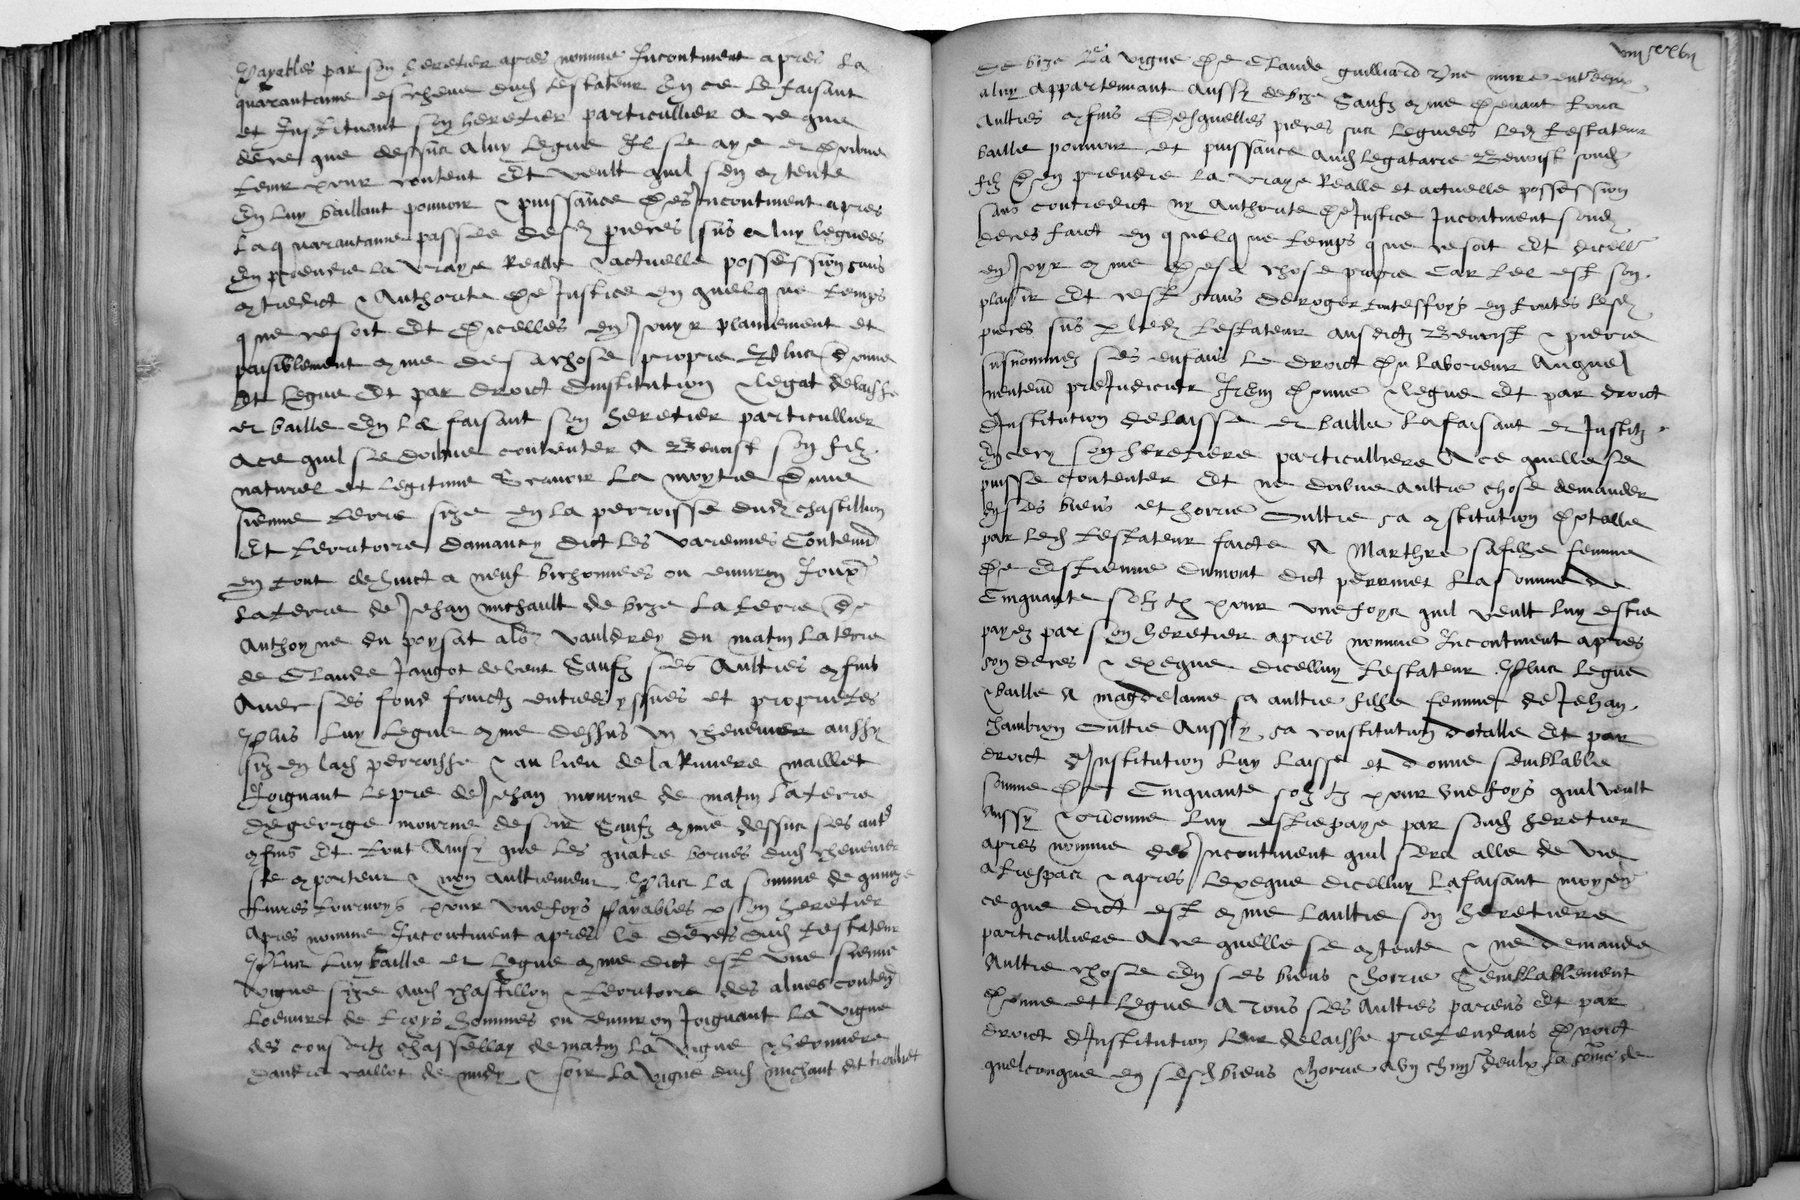 Payables par son heretier apres nomme Incontinent apres la
quarantaine escheue dudict testateur En ce le faisant
et Instituant son heretier particullier a ce que
de ce que dessus a luy legue Il se aye et doibve
tenir pour content Et veult quil sen contente
En luy baillant povoir & puissance des Incontinent apres
la quarantaine passee desdictes pieces sus a luy leguees
En prendre la vraye Realle & actuelle possession sans
contredict & Authorite de Justice en quelque temps
que ce soit Et dicelles en Jouyr plainement et
paisiblement comme de sa chose propre Plus donne
Et legue Et par droict dinstitution & legat delaisse
et baille En le faisant son heretier particullier
A ce quil se doibve contenter A Benoist son filz
naturel et legitime Scavoir la moytie dune
sienne terre size en la perroisse dudict chastillion
Et territoire damancy dict les varennes Contenant
en tout de huict a neuf bichonnees ou environ Joux
la terre de Jehan michault de bize la terre de
Anthoyne du poysat alias vauldrey du matin la terre
de Claude Jangot de vent Saufz ses Aultres confins
Avec ses fond fruictz entrees yssues et proprietes
Plus luy legue comme dessus un chenevier aussy
siz en ladicte perroisse & au lieu de la Riviere maillet
Joignant le pre de Jehan monone de matin la terre
de george mourne de soir Saufz comme dessus ses autres
confins Et tout Ainsy que les quatre bornes dudict chenevier
se comportent & non aultrement Plus la somme de quinze
livres tournoys pour une foys Payables par son heretier
Apres nomme Incontinent apres le deces dudict testateur
Plus luy baille et legue comme dict est une sienne
vigne size audict chastillon & territoire des alues contenant
loeuvre de troys hommes ou environ Joignant la vigne
des consortz chassellay de matin la vigne & hermiere
dandre caillot de midy & soir la vigne dudict michaut et traillet
De bize la vigne de Claude guilliard Une mure entre deux
a luy appartenant Aussy de bize Saufz comme devant leurs
Aultres confins Desquelles pieces sus leguees ledict testateur
baille pouvoir et puissance audict legataire Benoist sondict
filz den prendre la vraye Realle et actuelle possession
sans contredict ny Authorite de Justice Incontinent sondict
deces faict en quelque temps que ce soit Et dicelle
en Jouyr comme de sa chose propre Car tel est son
plaisir Et cest sans deroger toutesfoys en toutes lesdictes
pieces sus par ledict testateur ausdictz Benoist & pierre
susnommez ses enfans le droict du laboreur Auquel
nentend preJudicier Item donne & legue Et par droict
dInstitution delaisse et baille la faisant et Instituant
En cecy son heretiere particulliere A ce quelle se
puisse contenter Et ne doibve aultre chose demander
en ses biens et horrie Oultre sa constitution dotalle
par ledict testateur faicte A Marthre sa filhe femme
de Estienne dumont dict perrinet la somme de
Cinquante solz tz pour une foys quil veult luy estre
payez par son heretier apres nomme Incontinent apres
son deces & exeque dicelluy testateur Plus legue
& baille A magdelaine sa aultre filhe femme de Jehan
chambion Oultre Aussy sa constitution dotalle Et par
droict dInstitution luy laisse et donne semblable
somme de Cinquante solz tz pour une foys quil veult
Aussy & ordonne luy estre paye par sondict heretier
apres nomme des Incontinent quil sera alle de vie
a trespas & apres lexeque dicelluy la faisant moyennant
ce que dict est comme laultre son heretiere
particulliere A ce quelle se contente & ne demande
Aultre chose En ses biens & horrie Semblablement
donne et legue A tous ses Aultres parens Et par
droict dInstitution leur delaisse pretendans droict
quelconque en sesdictz biens & horrie A un chascun deulx la somme de